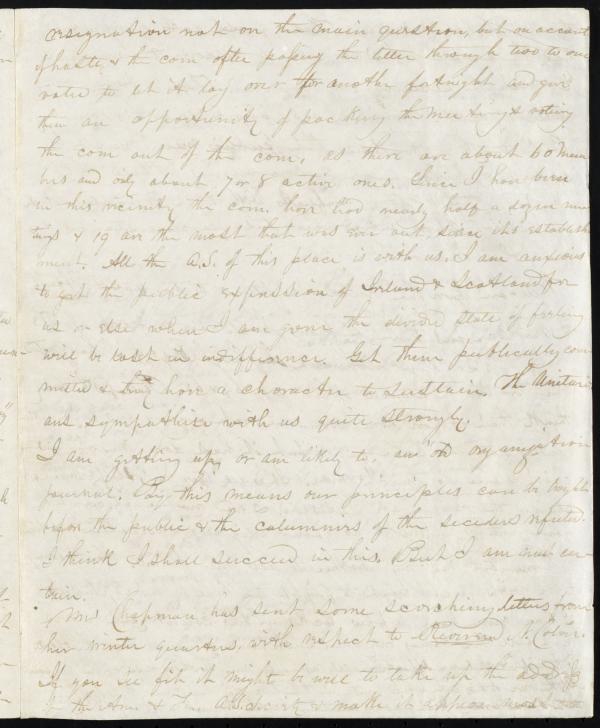 resignation not on the main question, but on account
of haste & the com after passing the letter through two to one
voted to let it lay over for another fortnight and give
them an opportunity of packing the meeting & voting
the com out of the com, as there are about 60 mem
bers and only about 7 or 8 active ones. Since I have been
in this vicinity the com. have had nearly half a dozen mee
tings & 19 are the most that was ever out since its establish
ment. All the A.S. of this place is with us. I am anxious
to get the public expression of Ireland & Scotland for
us or else when I am gone the divided state of feeling
will be lost in indifference. Get them publically com
mitted & they have a character to sustain. The Unitari
ans sympathize with us quite strongly.
I am getting up, or am likely to, an old organization
journal. By this means our principles can be brought
before the public & the calumnies of the seceders refuted.
I think I shall succeed in this. But I am not cer
tain.
Mrs Chapman has sent some scorching letters from
her winter quarters, with respect to Reverend N. Colver.
If you see fit it might be well to take up the add. of
the Am. & For. A.S. Society & make it appear